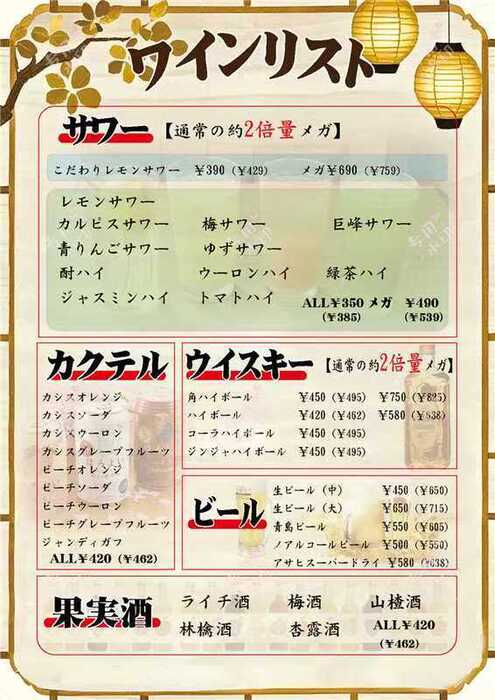 ワインリスト
サワー【通常の約2倍量メガ】
こだわりレモンサワー ¥390(¥429) メガ¥690(¥759)
レモンサワー
カルピスサワー 梅サワー 巨峰サワー
青りんごサワー ゆずサワー
酎ハイ ウーロンハイ 緑茶ハイ
ジャスミンハイ トマトハイ ALL¥350 メガ ¥490
(¥385) (¥539)
カクテル
カシスオレンジ
カシスソーダ
カシスウーロン
カシスグレープフルーツ
ピーチオレンジ
ピーチソーダ
ピーチウーロン
ピーチグレープフルーツ
ジャンディガフ
ALL¥420 (¥462)
ウイスキー【通常の約2倍量メガ】
角ハイボール ¥450(¥495) ¥750(¥825)
ハイボール ¥420(¥462) ¥580(¥638)
コーラハイボール ¥450(¥495)
ジンジャハイボール ¥450(¥495)
ビール
生ビール(中) ¥450(¥650)
生ビール(大) ¥650(¥715)
青島ビール ¥550(¥605)
ノアルコールビール ¥500(¥550)
アサヒスーパードライ ¥580(¥638)
果実酒
ライチ酒 梅酒 山楂酒
林檎酒 杏露酒 ALL¥420
(¥462)